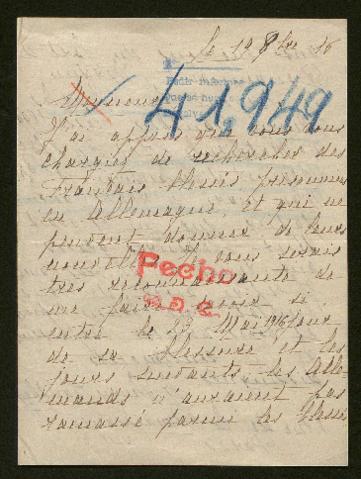 le 19 8bre 16
Monsieur
41,949
J'ai appris que vous vous
chargiez de recherches des
Français blessés prisonniers
en Allemagne et qui ne
peuvent donner de leurs
nouvelles. Je vous serais
très reconnaissante de
me faire savoir si
entre le 23 Mai 1916 jour
de sa blessure et les
jours suivants les Alle
mands n'auraient pas
ramassé parmi les blessés
Pecho